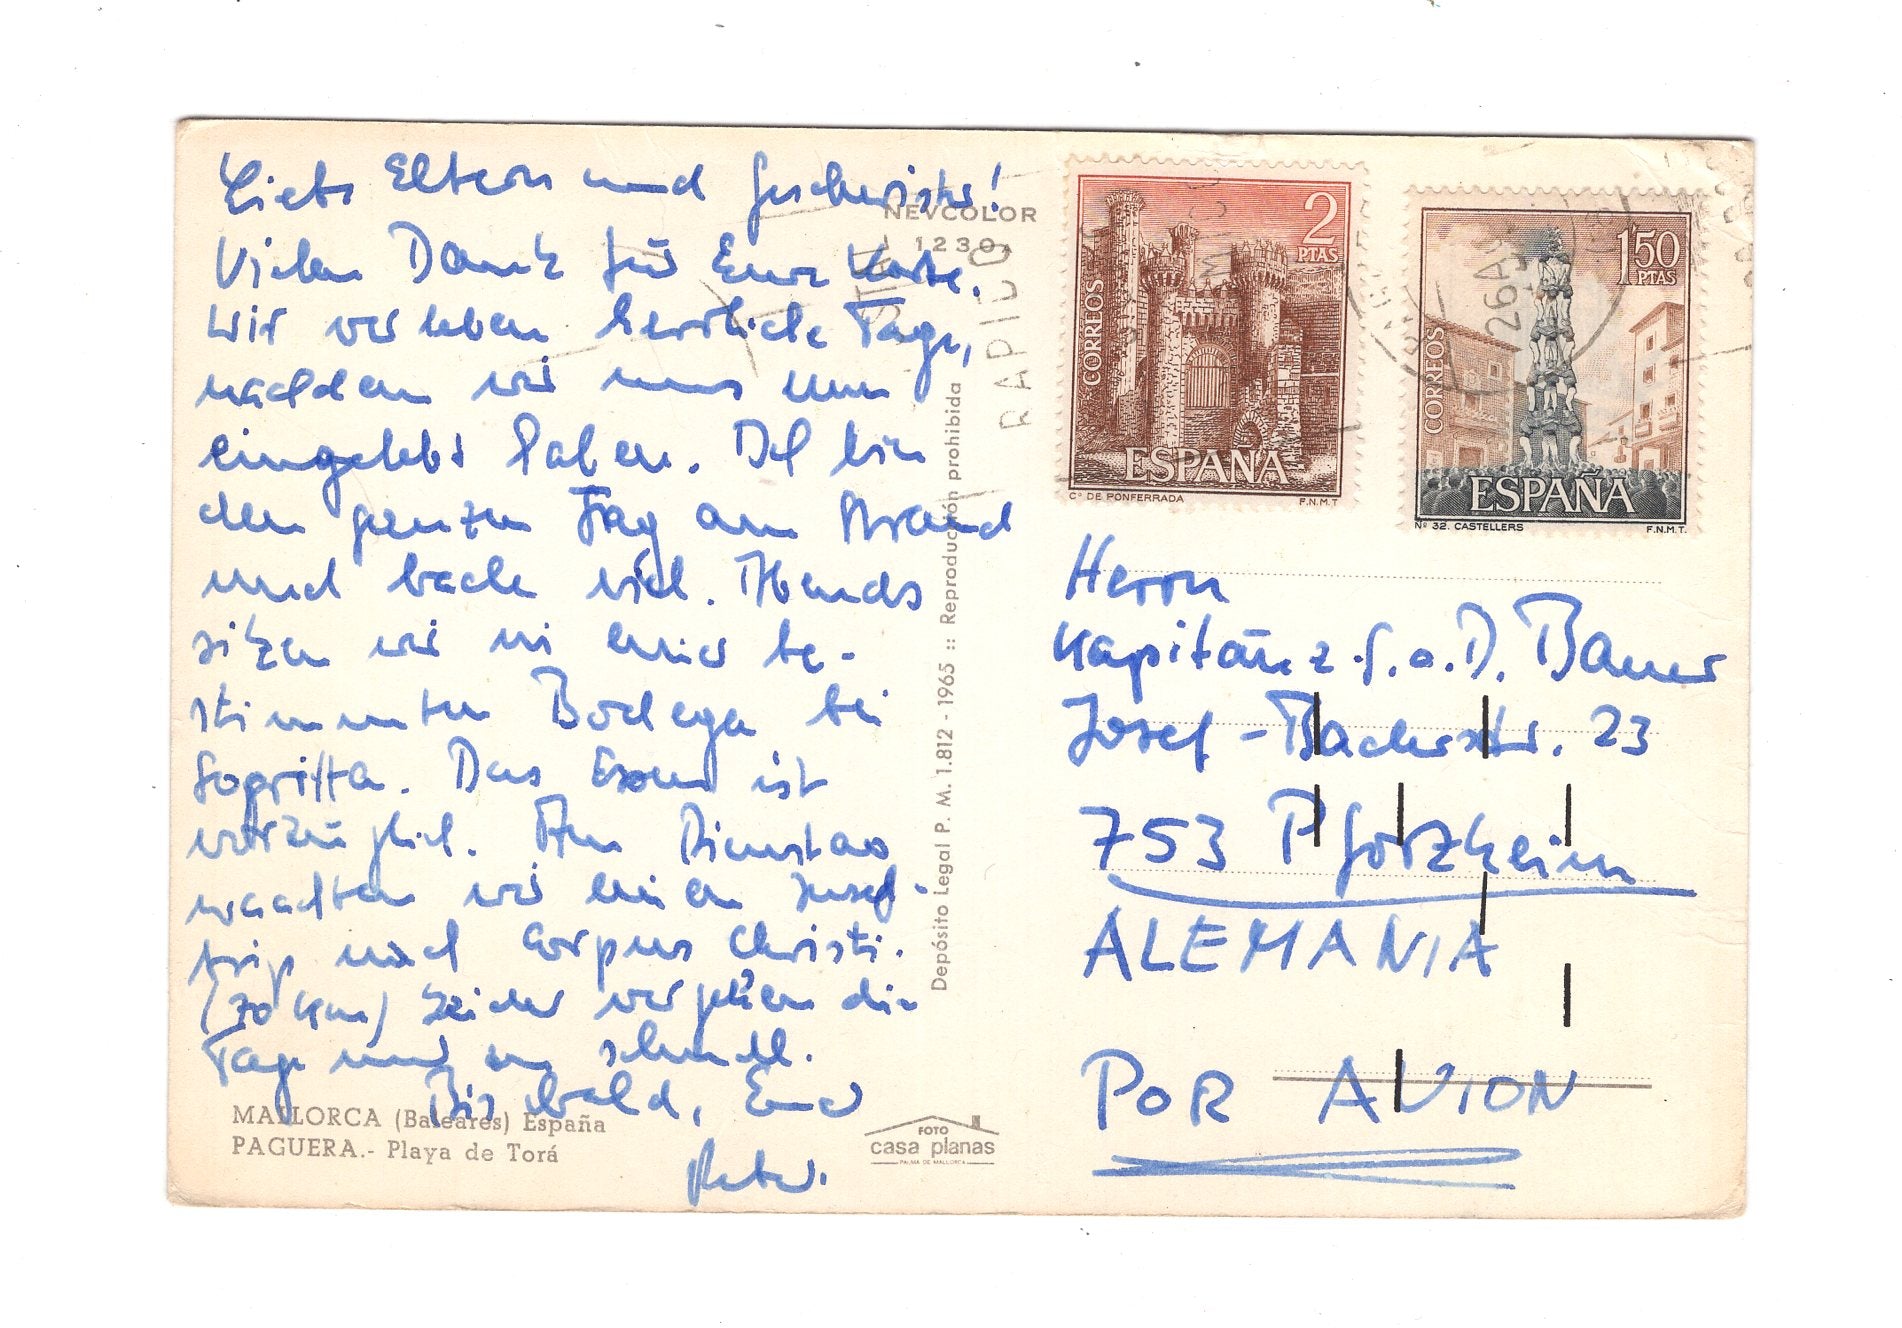 Liebe Eltern und Geschwister!
Vielen Dank für Eure Karte.
Wir verleben herrliche Tage,
nachdem wir uns nun
eingelebt haben. Ich bin
den ganzen Tag am Strand
und bade viel. Abends
sitzen wir in einer be-
stimmten Bodega bei
. Das Essen ist
vorzüglich. Am Dienstag
machten wir einen Insel-
trip nach Corpus Christi.
(70 km) Leider vergehen die
Tage nur so schnell.
Bis bald, Euer
Peter.
MALLORCA (Baleares) España
PAGUERA.- Playa de Torá
NEVCOLOR
1230
RAPIDO
Depósito Legal P. M. 1.812 - 1965 :: Reproducción prohibida
FOTO
casa planas
PALMA DE MALLORCA
CORREOS
2
PTAS
ESPAÑA
Cº DE PONFERRADA
F.N.M.T
CORREOS
1'50
PTAS
ESPAÑA
Nº 32. CASTELLERS
F.N.M.T.
26 AG
Herrn
Kapitän z.S.a.D. Bauer
Josef-Baderstr. 23
753 Pforzheim
ALEMANIA
POR AVION